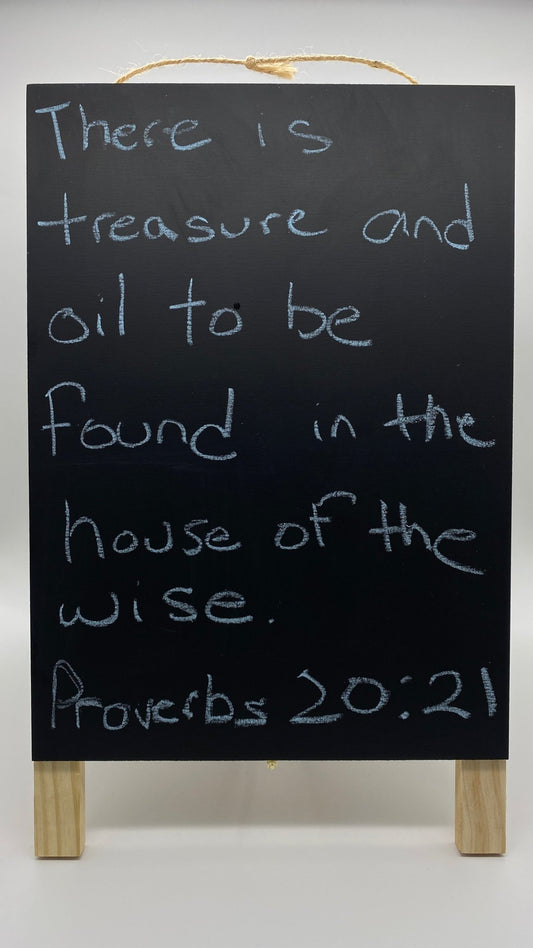 There is
treasure and
oil to be
found in the
house of the
wise.
Proverbs 20:21